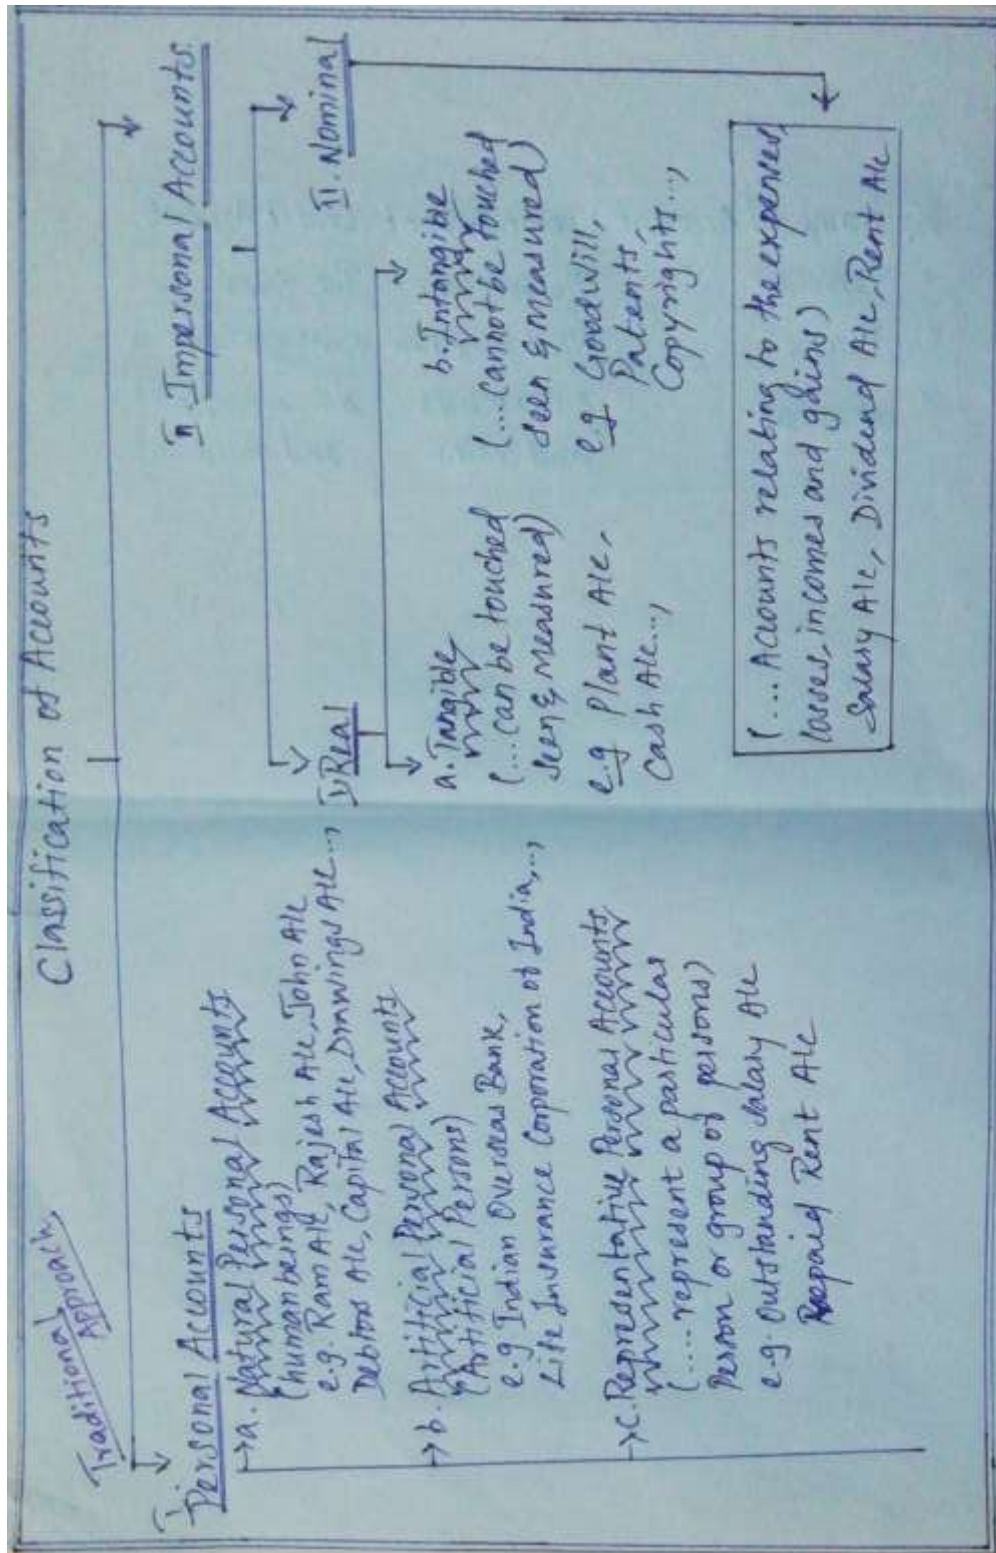 Classification of Accounts
Traditional Approach
I Personal Accounts
a. Natural Personal Accounts
(human beings)
e.g. Ram A/c, Rajesh A/c, John A/c
Debtors A/c, Capital A/c, Drawings A/c...,
b. Artificial Personal Accounts
(Artificial Persons)
e.g Indian Overseas Bank,
Life Insurance Corporation of India,..,
C. Representative Personal Accounts
(.... represent a particular
Person or group of persons)
e.g. Outstanding Salary A/c
Prepaid Rent A/c
II. Impersonal Accounts
I) Real
a. Tangible
(...can be touched
seen & measured)
e.g Plant A/c,
Cash A/c...,
b. Intangible
(...cannot be touched
seen & measured)
e.g Goodwill,
Patents,
Copyrights...,
II. Nominal
(.... Accounts relating to the expenses,
losses, incomes and gains)
Salary A/c, Dividend A/c, Rent A/c